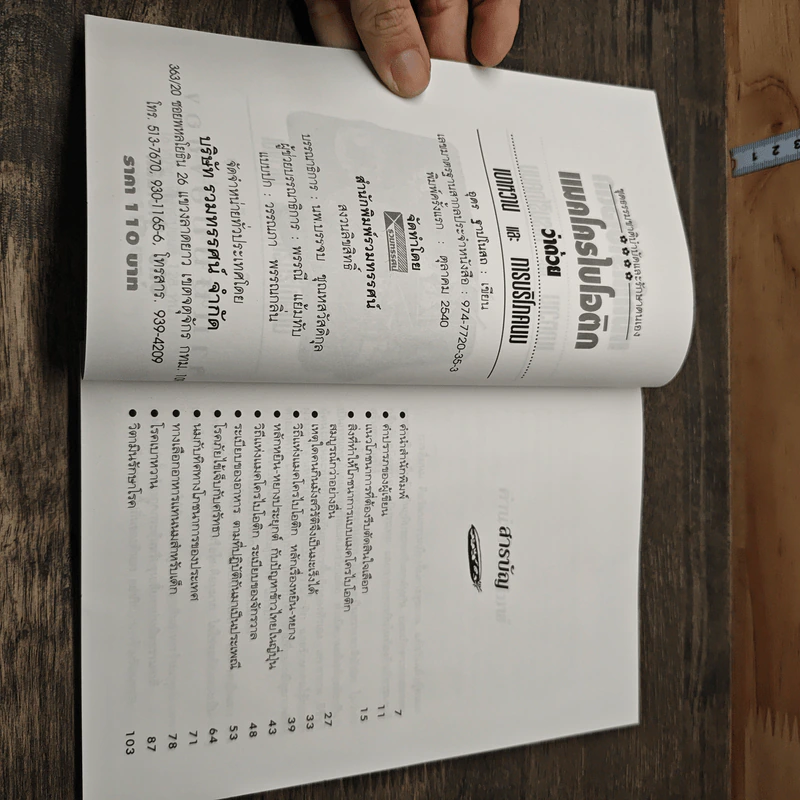 ชุดธรรมชาติบำบัดและรักษาตนเอง
แมคโครไบโอติก
ว่าด้วย
เบาหวาน และ การบริโภคนม
อุดร ฐาปโนสถ : เขียน
เลขมาตรฐานสากลประจำหนังสือ : 974-7720-35-3
พิมพ์ครั้งแรก : ตุลาคม 2540
จัดทำโดย
รวมทรรศน์
สำนักพิมพ์รวมทรรศน์
สงวนลิขสิทธิ์
บรรณาธิการ : นพ.บรรจบ ชุณหสวัสดิกุล
ผู้ช่วยบรรณาธิการ : พรรณี แย้มทับ
แบบปก : วรรณภา พรรณกลิ่น
จัดจำหน่ายทั่วประเทศโดย
บริษัท รวมทรรศน์ จำกัด
363/20 ซอยพหลโยธิน 26 แขวงลาดยาว เขตจตุจักร กทม.
โทร. 513-7670, 930-1165-6, โทรสาร. 939-4209
ราคา 110 บาท
สารบัญ
● คำนำสำนักพิมพ์ 7
● คำปรารภของผู้เขียน 11
● แนวโภชนาการที่ต้องรีบตัดสินใจเลือก 15
● สิ่งที่ทำให้โภชนาการแบบแมคโครไบโอติก
สมบูรณ์กว่าอย่างอื่น 27
● เหตุใดคนกินมังสวิรัติจึงเป็นมะเร็งได้ 33
● วิถีแห่งแมคโครไบโอติก หลักเรื่องหยิน-หยาง 39
● หลักหยิน-หยางประยุกต์ กับปัญหาข้าวไทยในญี่ปุ่น 43
● วิถีแห่งแมคโครไบโอติก ระเบียบของจักรวาล 48
● ระเบียบของอาหาร ตามที่ปฏิบัติกันมาเป็นประเพณี 53
● โรคภัยไข้เจ็บกับศรัทธา 64
● นมกับทิศทางโภชนาการของประเทศ 71
● ทางเลือกอาหารแทนนมสำหรับเด็ก 78
● โรคเบาหวาน 87
● วิตามินรักษาโรค 103